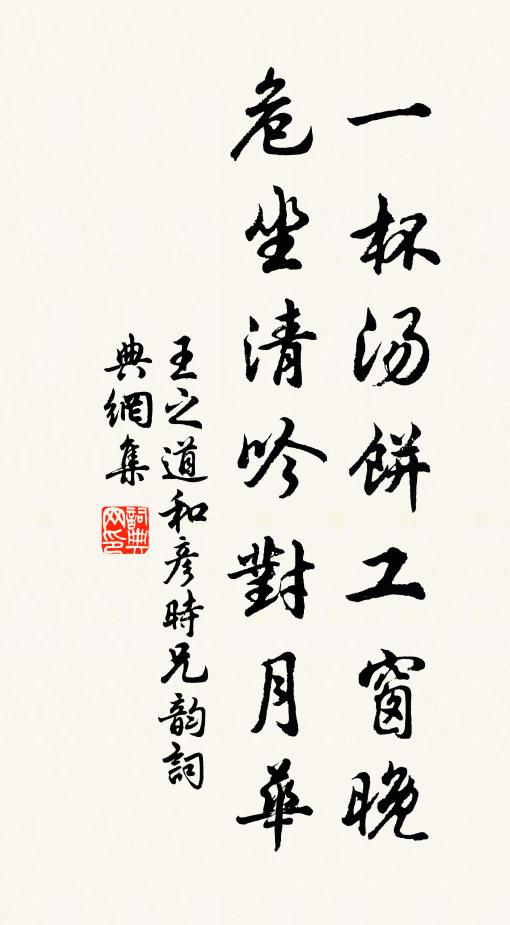 一杯汤餅工窗晚
危坐清吟對月華
王之道和彦時兄韵詞
典網集
詞典网印